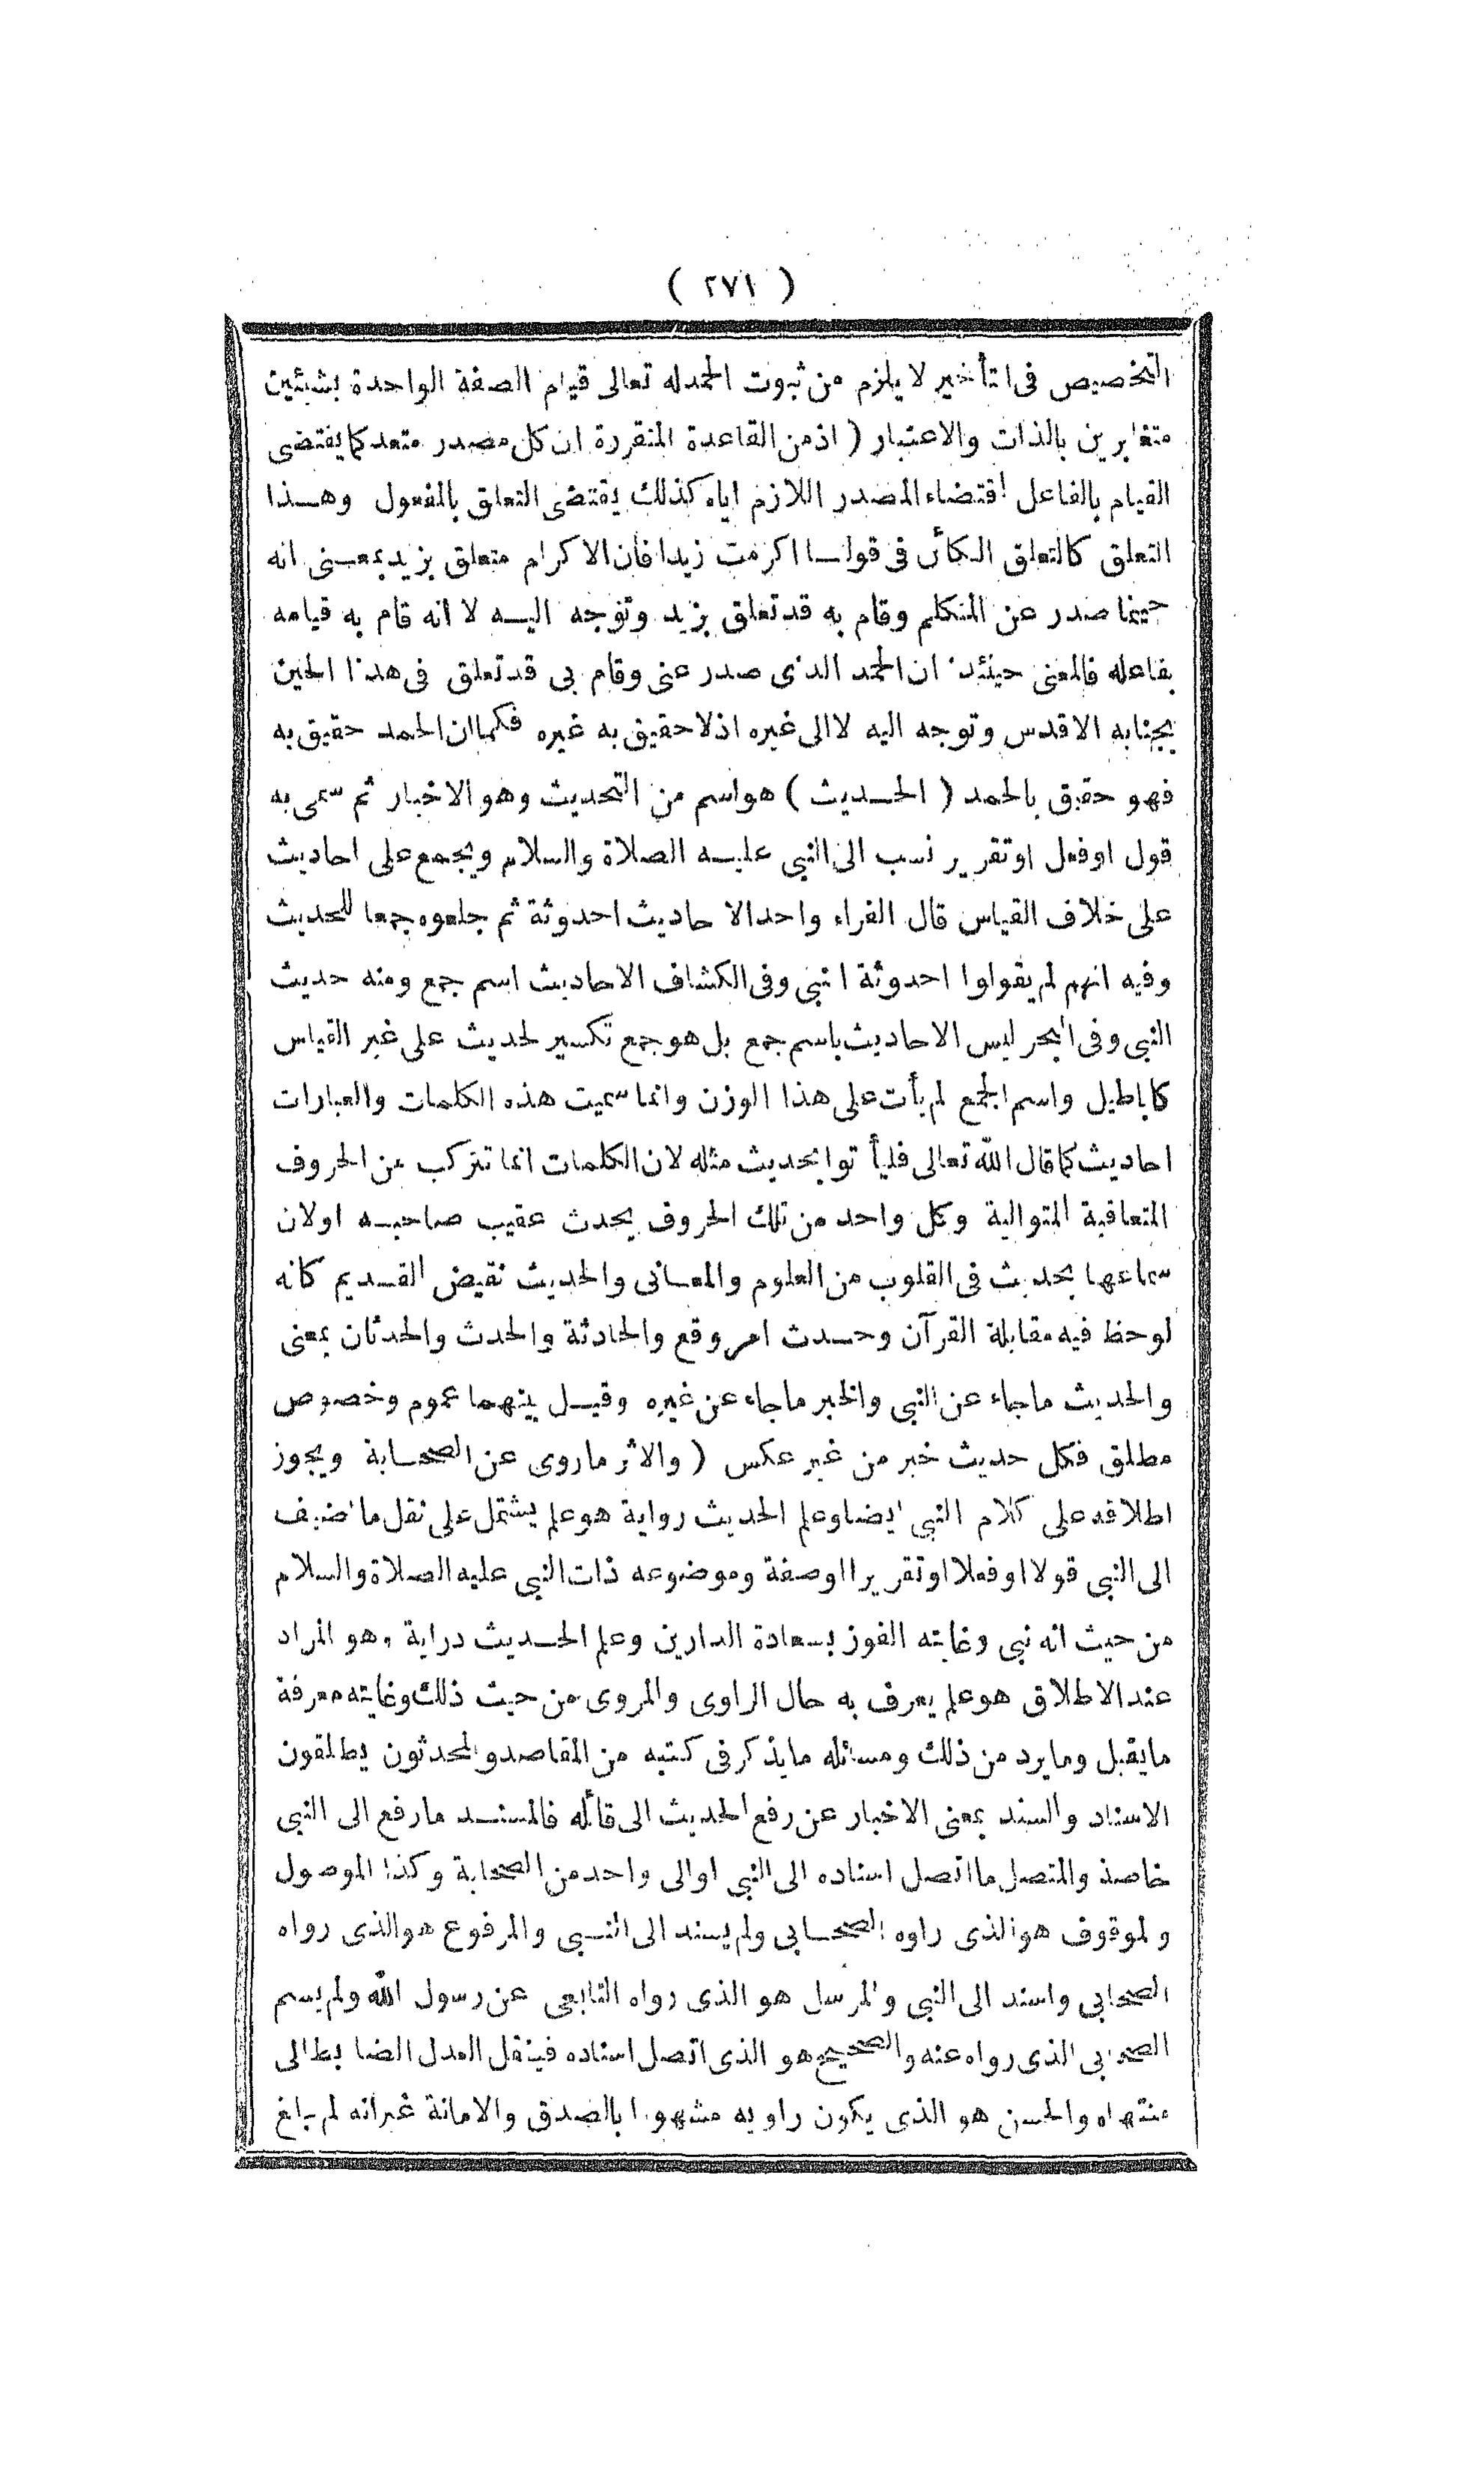 ( ٢٧١ )
التخصيص فى التأخير لا يلزم من ثبوت الحمدله تعالى قيام الصفة الواحدة بشيئين
متغايرين بالذات والاعتبار ( اذمن القاعدة المتقررة ان كل مصدر متعد كما يقتضى
القيام بالفاعل اقتضاء المصدر اللازم اياه كذلك يقتضى التعلق بالمفعول وهــذا
التعلق كالتعلق الكأن فى قولنا اكرمت زيدا فان الاكرام متعلق بزيد بمعــنى انه
حينما صدر عن المتكلم وقام به قد تعلق بزيد وتوجه اليــه لا انه قام به قيامه
بفاعله فالمعنى حينئذ ان الحمد الذى صدر عنى وقام بى قد تعلق فى هذا الحين
بجنابه الاقدس وتوجه اليه لا الى غيره اذ لا حقيق به غيره فكما ان الحمد حقيق به
فهو حقيق بالحمد ( الحــديث ) هو اسم من التحديث وهو الاخبار ثم سمى به
قول او فعل او تقرير نسب الى النبى عليــه الصلاة والسلام ويجمع على احاديث
على خلاف القياس قال الفراء واحد الاحاديث احدوثة ثم جلعوه جمعا للحديث
وفيه انهم لم يقولوا احدوثة النبى وفى الكشاف الاحاديث اسم جمع ومنه حديث
النبى وفى البحر ليس الاحاديث باسم جمع بل هو جمع تكسير لحديث على غير القياس
كاباطيل واسم الجمع لم يأت على هذا الوزن وانما سميت هذه الكلمات والعبارات
احاديث كما قال الله تعالى فليأ توا بحديث مثله لان الكلمات انما تتركب من الحروف
المتعاقبة المتوالية وكل واحد من تلك الحروف يحدث عقيب صاحبــه اولان
سماعها يحدث فى القلوب من العلوم والمعــانى والحديث نقيض القــديم كانه
لوحظ فيه مقابلة القرآن وحــدث امر وقع والحادثة والحدث والحدثان بمعنى
والحديث ماجاء عن النبى والخبر ماجاء عن غيره وقيــل بينهما عموم وخصوص
مطلق فكل حديث خبر من غير عكس ( والاثر ماروى عن الصحــابة ويجوز
اطلاقه على كلام النبى ايضا وعلم الحديث رواية هو علم يشتمل على نقل ما اضيف
الى النبى قولا او فعلا او تقريرا او صفة وموضوعه ذات النبى عليه الصلاة والسلام
من حيث انه نبى وغايته الفوز بسعادة الدارين وعلم الحــديث دراية وهو المراد
عند الاطلاق هو علم يعرف به حال الراوى والمروى من حيث ذلك وغايته معرفة
ما يقبل وما يرد من ذلك ومسائله ما يذكر فى كتبه من المقاصد والمحدثون يطلقون
الاسناد والسند بمعنى الاخبار عن رفع الحديث الى قائله فالمسنــد مارفع الى النبى
خاصة والمتصل ما اتصل اسناده الى النبى او الى واحد من الصحابة وكذا الموصول
ولموقوف هو الذى راوه الصحــابى ولم يسند الى النــبى والمرفوع هو الذى رواه
الصحابى واسند الى النبى والمرسل هو الذى رواه التابعى عن رسول الله ولم يسم
الصحابى الذى رواه عنه والصحيح هو الذى اتصل اسناده فينقل العدل الضابط الى
منتهاه والحسن هو الذى يكون راويه مشهورا بالصدق والامانة غير انه لم يبلغ